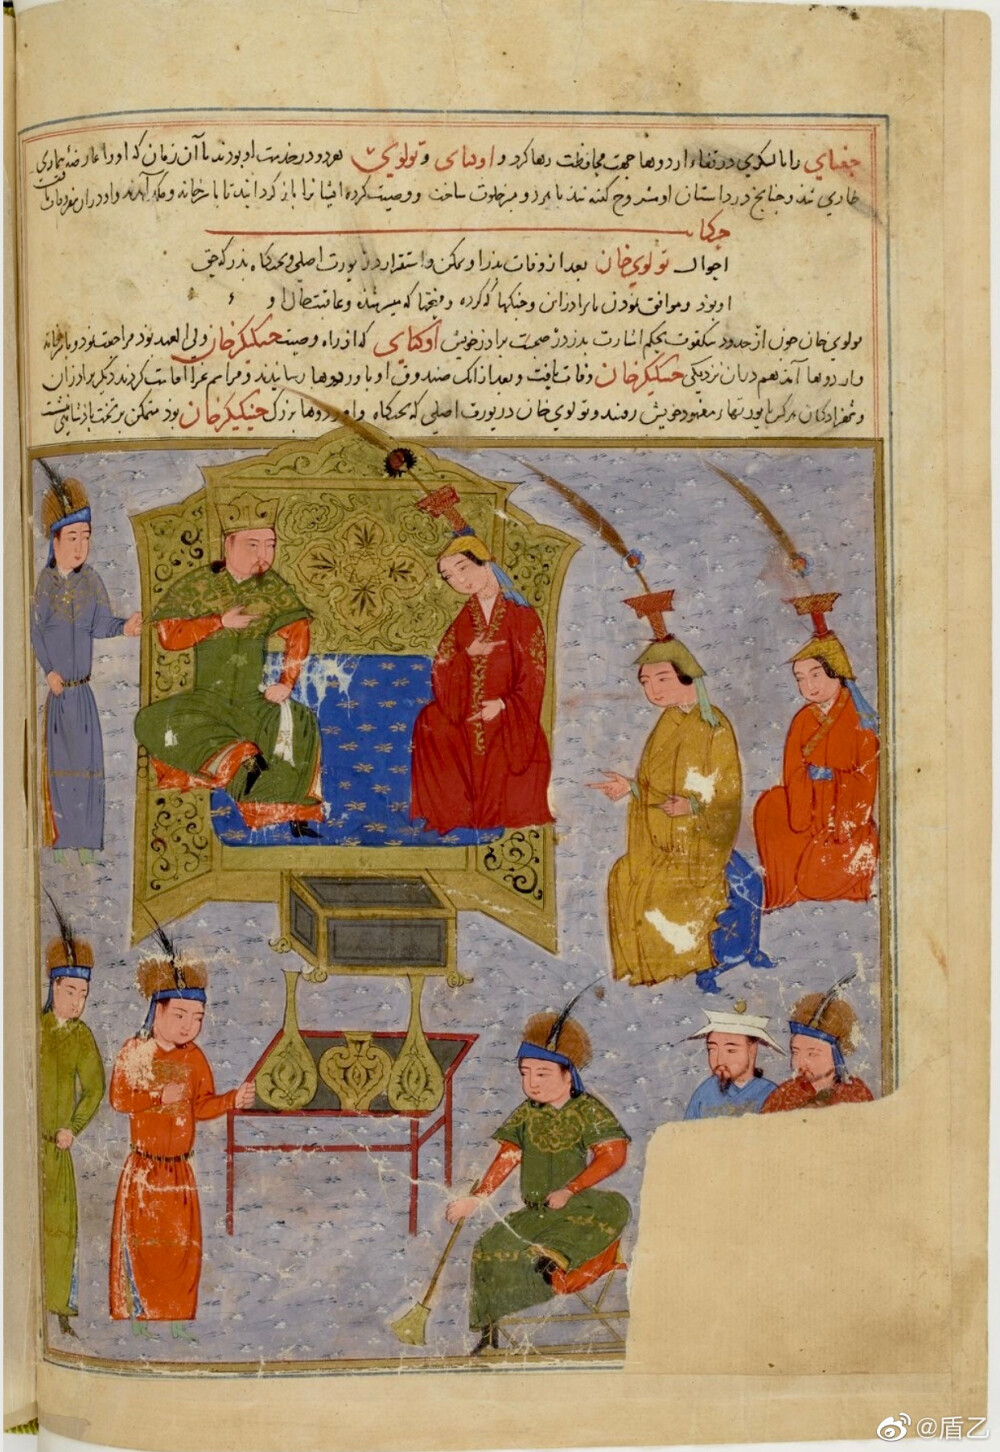 جغتای را با لشکری در قفاء اردوها جهت محافظت رها کرد و اوکتای و تولوی هر دو در خدمت او بودند تا آن زمان که او را عارضهٔ بیماری
طاری شد و چنانچ در داستان او مشروح گفته شد با هر دو خلوت ساخت و وصیت کرده ایشانرا باز گردانید تا با سرخانه و ملک آمدند و او در ان سفر وفات یافت
حکایت
احوال تولوی خان بعد از وفات پدر او و تمکن و استقرار در یورت اصلی و تختگاه پدر که حق
او بود و موافق بودن با برادران و جنکها که کرده و فتحها که میسر شده و عاقبت حال او
تولوی خان چون از حدود تنکقوت بحکم اشارت پدر در صحبت برادر خویش اوکتای که از راه وصیت جینککیزخان ولی العهد بود مراجعت نمود و با سرخانه
و اردوها آمد هم در ان نزدیکی جینککیزخان وفات یافت و بعد از انک صندوق او با اردوها رسانیدند و مراسم عزا اقامت کردند دیگر برادران
و شهزادکان هر کس با یورتهاء معهود خویش رفتند و تولوی خان در یورت اصلی که تختگاه و اوردوها بزرک جینککیزخان بود متمکن بر تخت پادشاهی نشست
@盾乙